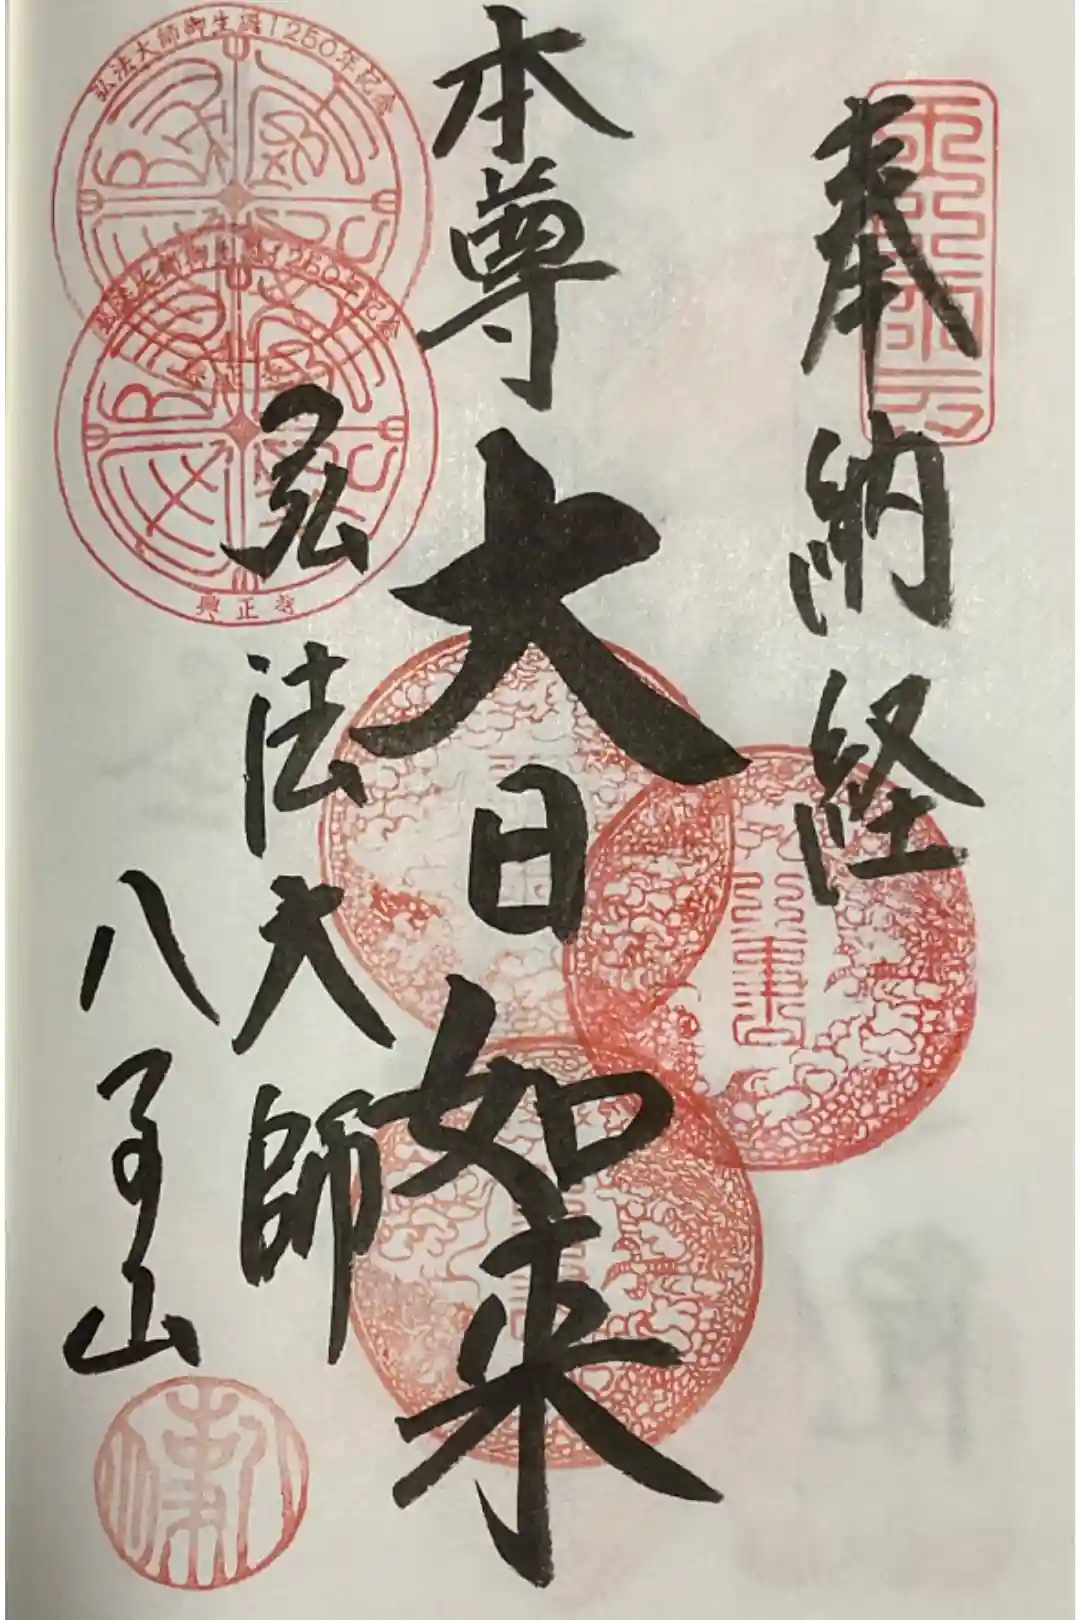 奉納経
本尊
大日如来
弘法大師
八事山
弘法大師御生誕1250年記念
弘法大師御生誕1250年記念
興正寺